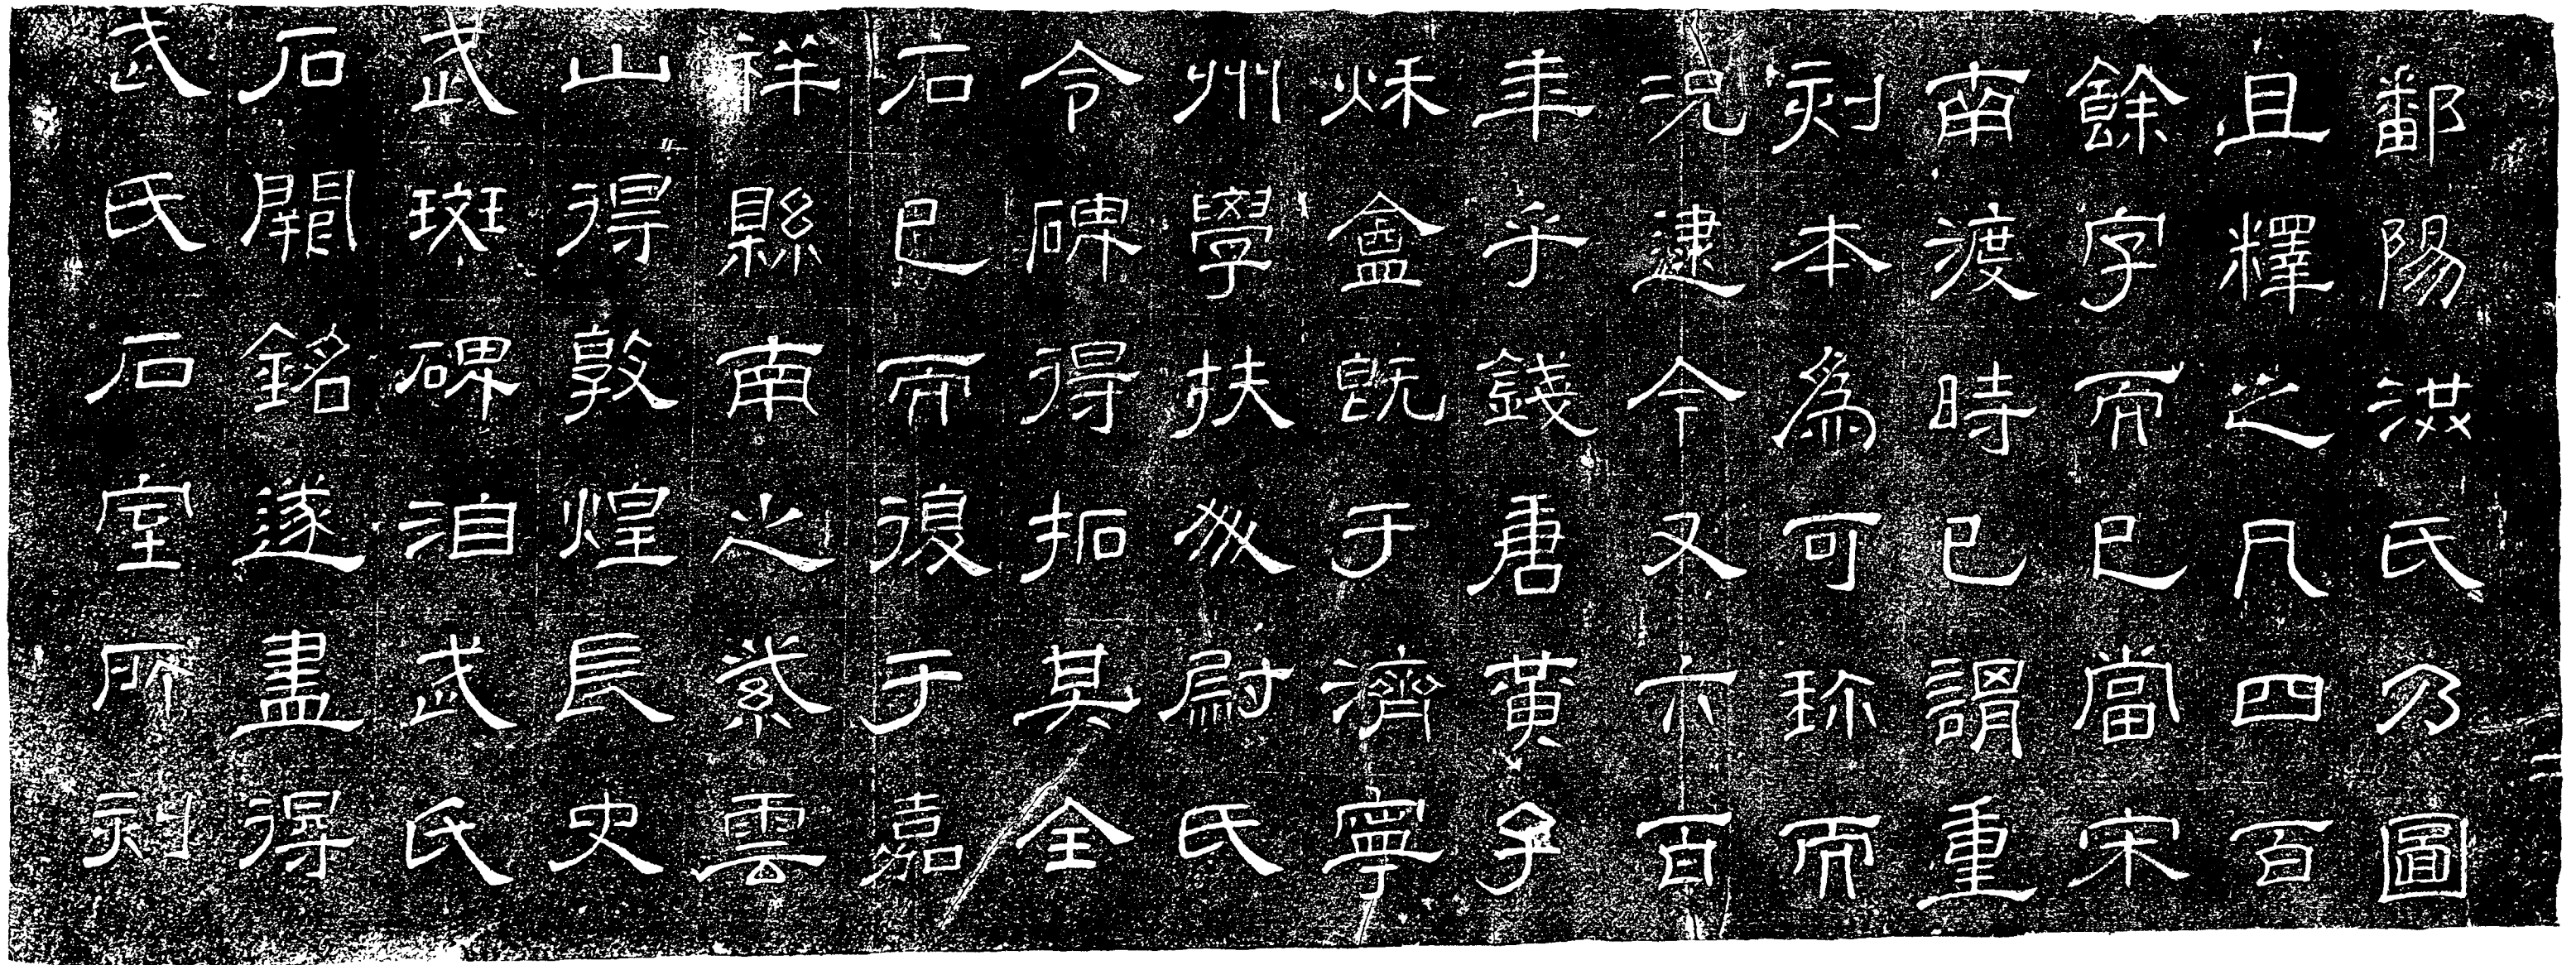 鄱陽洪氏乃圖
且釋之凡四百
餘字而已當宋
南渡時已謂重
刻本爲可珍而
況逮今又六百
年乎錢唐黃子
秌盦既于濟寧
州學扶升尉氏
令碑得拓其全
石已而復于嘉
祥縣南之紫雲
山得敦煌長史
武斑碑洎武氏
石闕銘遂盡得
武氏石室所刻